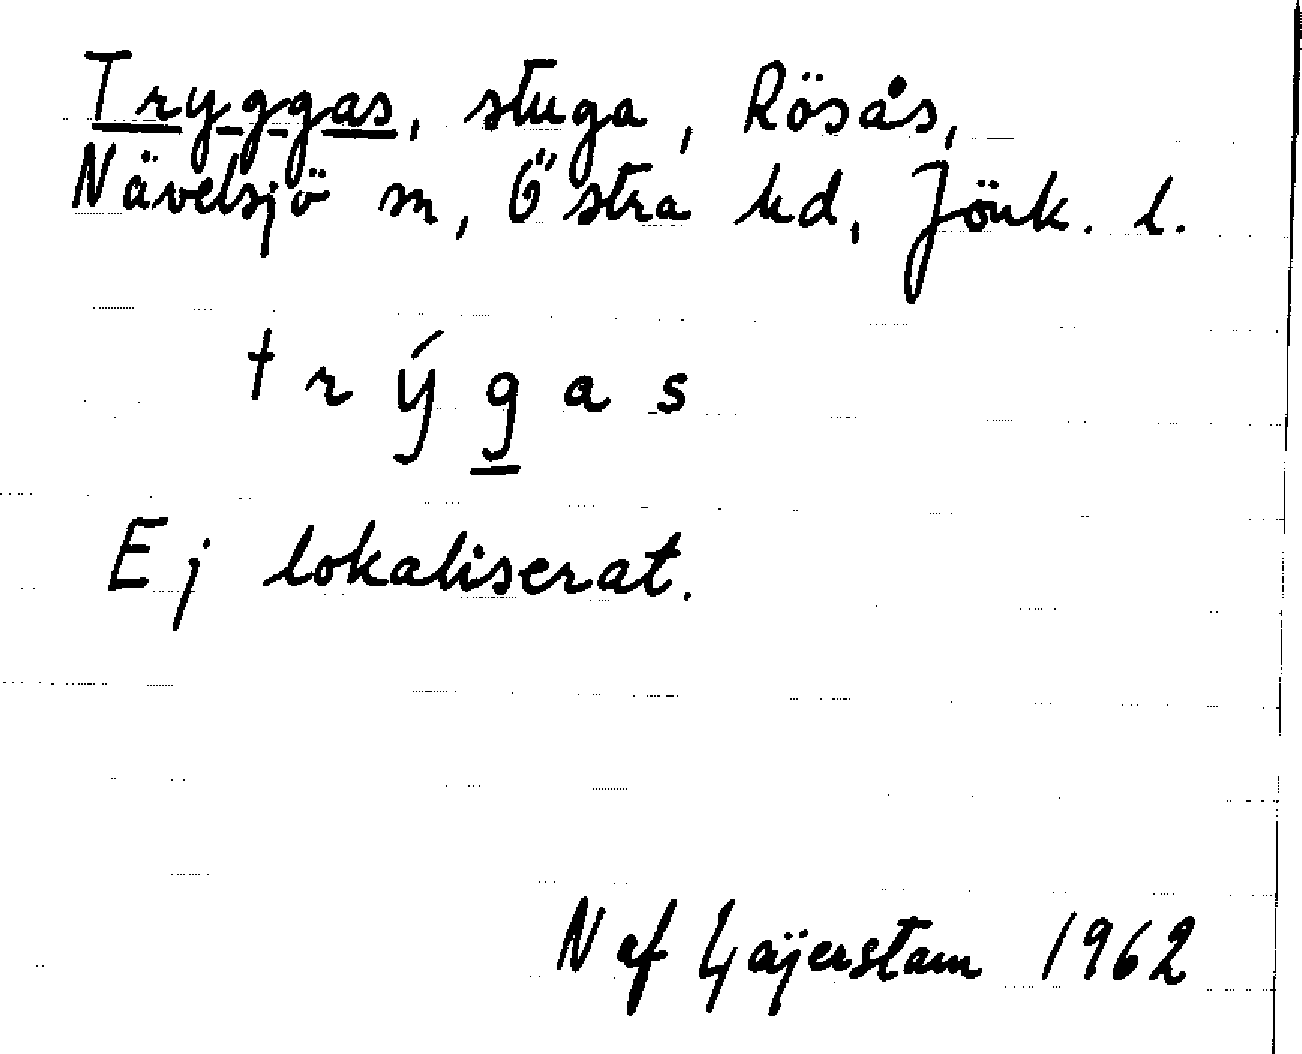 Tryggas, stuga, Rösås,
Nävelsjö sn, Östra hd, Jönk. l.
trýgas
Ej lokaliserat.
N af Gajerstam 1962